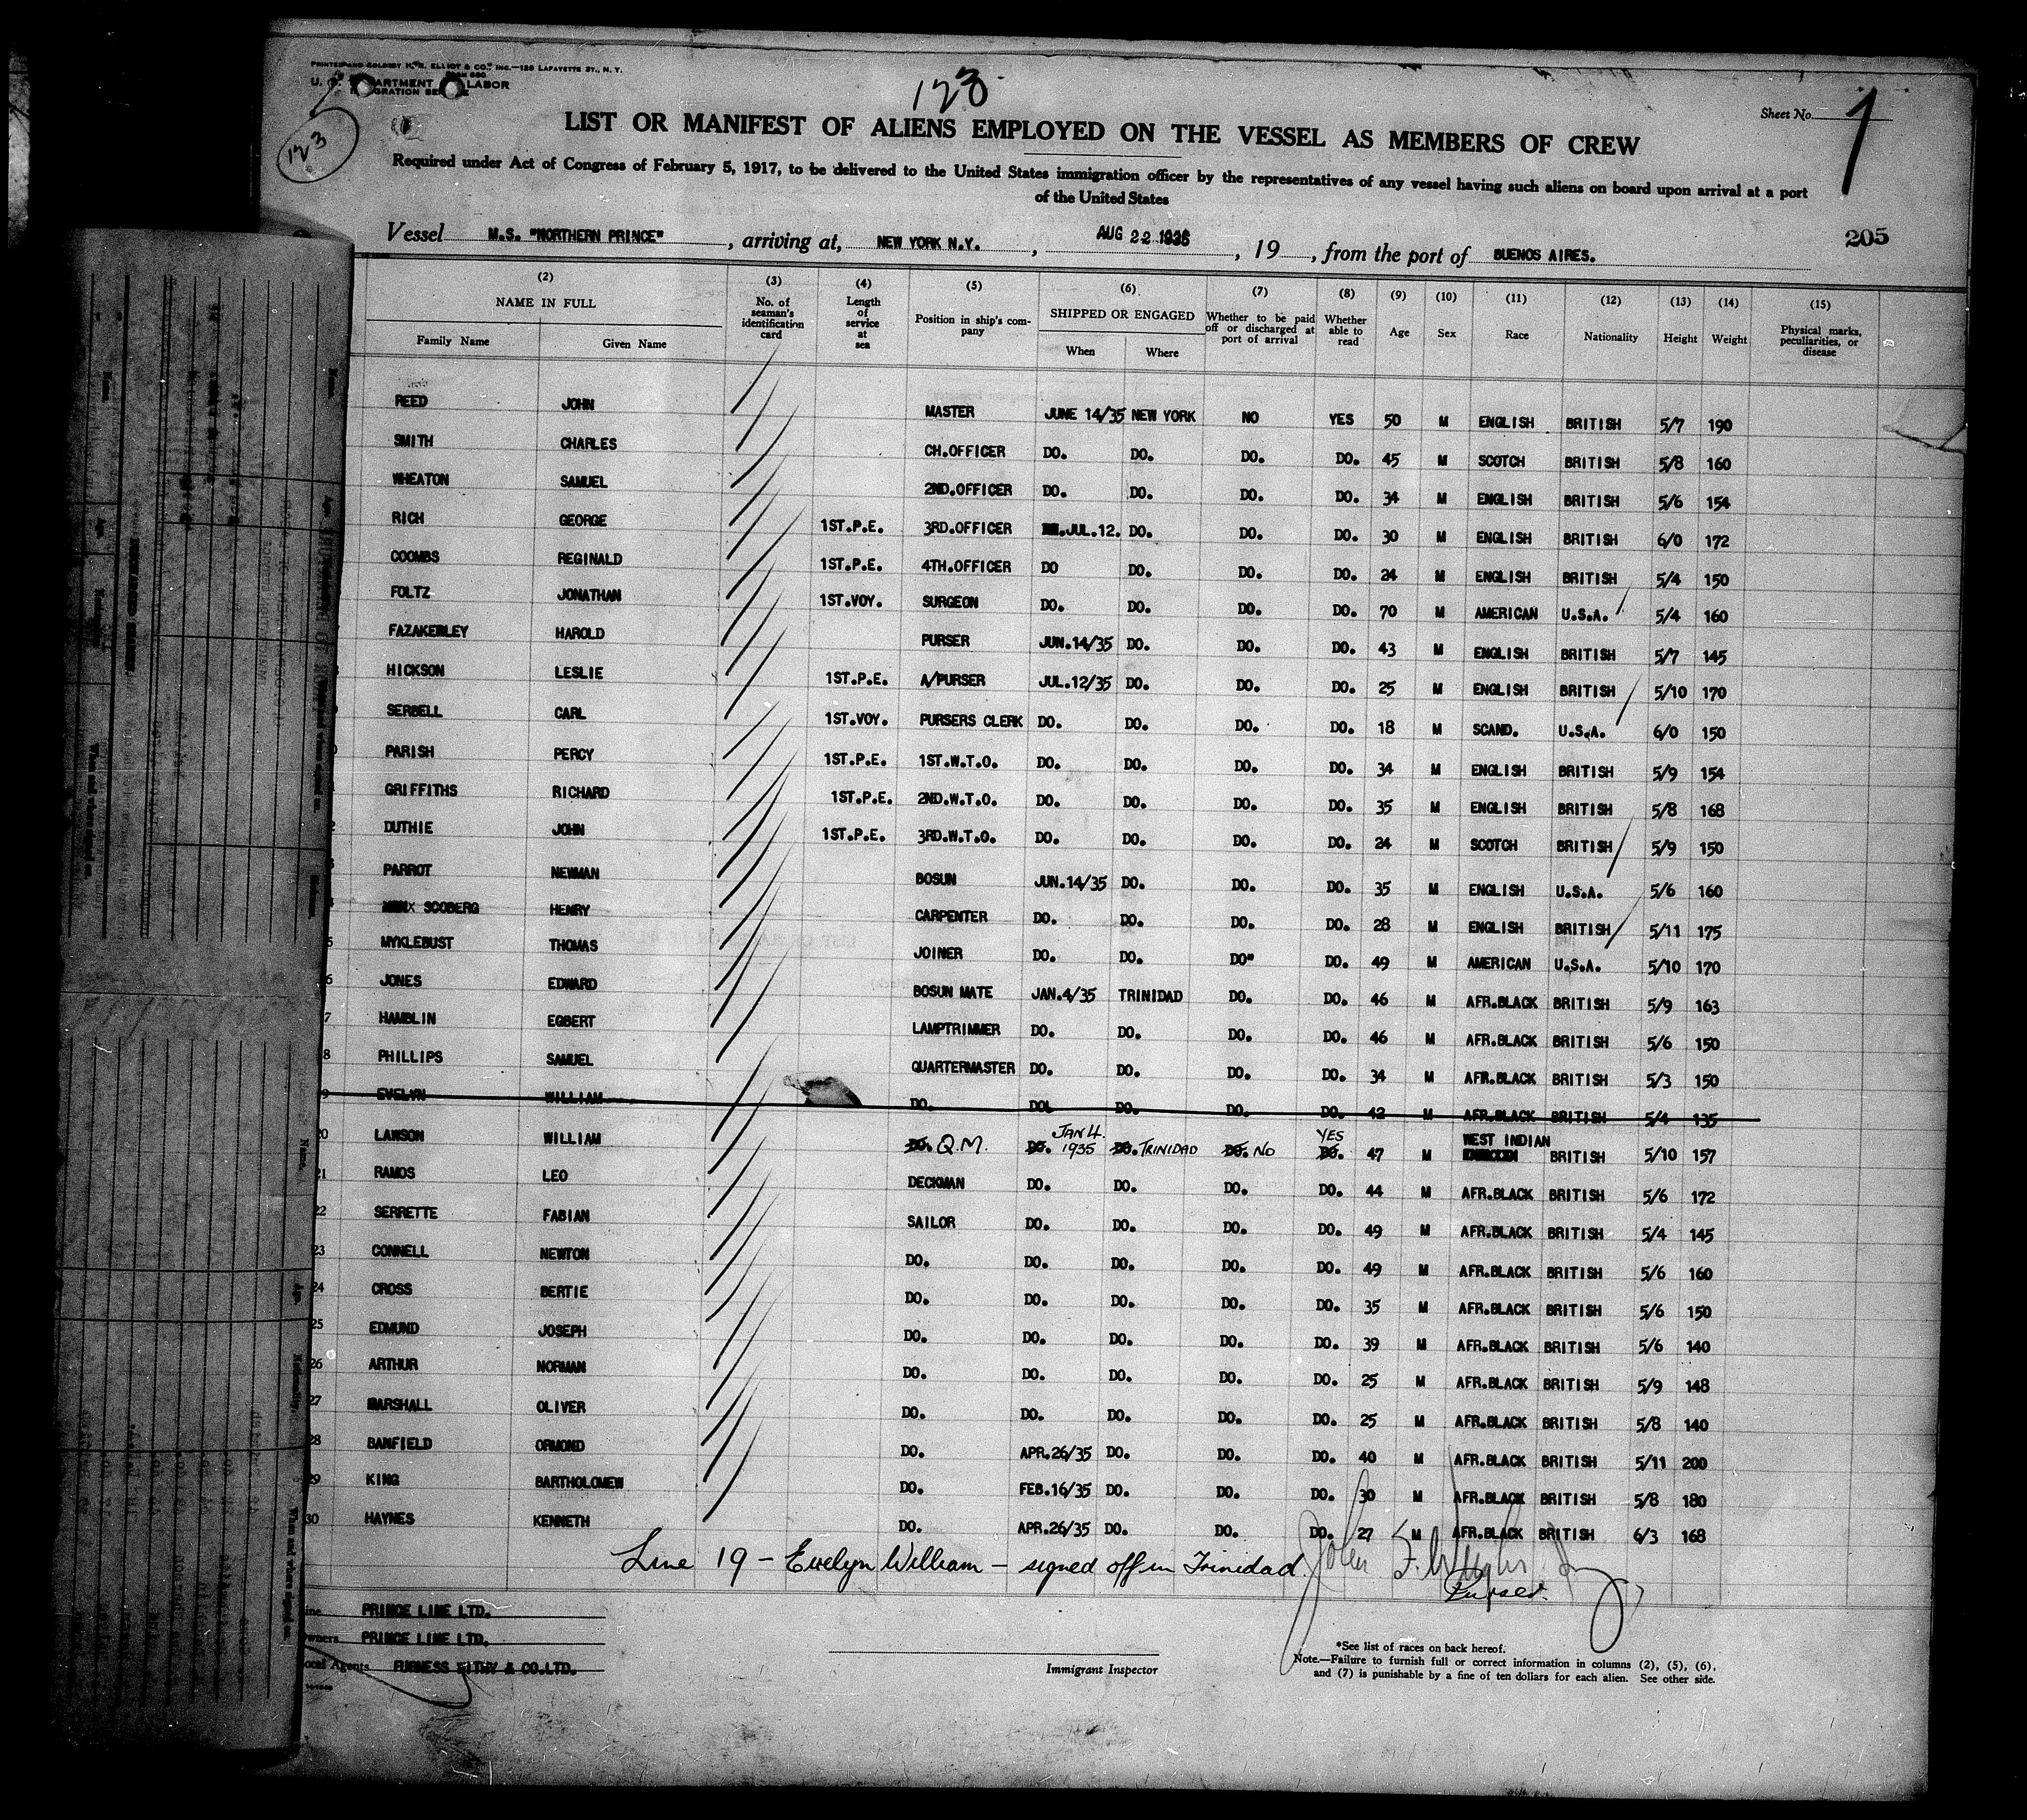 PRINTED AND SOLD BY H. R. ELLIOT & CO., INC.—126 LAFAYETTE ST., N. Y.
FORM 680
LABOR
123
123
Sheet No. 1
LIST OR MANIFEST OF ALIENS EMPLOYED ON THE VESSEL AS MEMBERS OF CREW
Required under Act of Congress of February 5, 1917, to be delivered to the United States immigration officer by the representatives of any vessel having such aliens on board upon arrival at a port
of the United States
205
Vessel M.S. "NORTHERN PRINCE", arriving at, NEW YORK N.Y., AUG 22 1935, 19, from the port of BUENOS AIRES.
(2) (3) (4) (5) (6) (7) (8) (9) (10) (11) (12) (13) (14) (15)
NAME IN FULL Family Name Given Name No. of seaman's identification card Length of service at sea Position in ship's company SHIPPED OR ENGAGED When Where Whether to be paid off or discharged at port of arrival Whether able to read Age Sex Race Nationality Height Weight Physical marks, peculiarities, or disease
REED JOHN MASTER JUNE 14/35 NEW YORK NO YES 50 M ENGLISH BRITISH 5/7 190
SMITH CHARLES CH.OFFICER DO. DO. DO. DO. 45 M SCOTCH BRITISH 5/8 160
WHEATON SAMUEL 2ND.OFFICER DO. DO. DO. DO. 34 M ENGLISH BRITISH 5/6 154
RICH GEORGE 1ST.P.E. 3RD.OFFICER JUL.12. DO. DO. DO. 30 M ENGLISH BRITISH 6/0 172
COOMBS REGINALD 1ST.P.E. 4TH.OFFICER DO DO. DO. DO. 24 M ENGLISH BRITISH 5/4 150
FOLTZ JONATHAN 1ST.VOY. SURGEON DO. DO. DO. DO. 70 M AMERICAN U.S.A. 5/4 160
FAZAKERLEY HAROLD PURSER JUN.14/35 DO. DO. DO. 43 M ENGLISH BRITISH 5/7 145
HICKSON LESLIE 1ST.P.E. A/PURSER JUL.12/35 DO. DO. DO. 25 M ENGLISH BRITISH 5/10 170
SERBELL CARL 1ST.VOY. PURSERS CLERK DO. DO. DO. DO. 18 M SCAND. U.S.A. 6/0 150
PARISH PERCY 1ST.P.E. 1ST.W.T.O. DO. DO. DO. DO. 34 M ENGLISH BRITISH 5/9 154
GRIFFITHS RICHARD 1ST.P.E. 2ND.W.T.O. DO. DO. DO. DO. 35 M ENGLISH BRITISH 5/8 168
DUTHIE JOHN 1ST.P.E. 3RD.W.T.O. DO. DO. DO. DO. 24 M SCOTCH BRITISH 5/9 150
PARROT NEWMAN BOSUN JUN.14/35 DO. DO. DO. 35 M ENGLISH U.S.A. 5/6 160
SCOBERG HENRY CARPENTER DO. DO. DO. DO. 28 M ENGLISH BRITISH 5/11 175
5 MYKLEBUST THOMAS JOINER DO. DO. DO" DO. 49 M AMERICAN U.S.A. 5/10 170
6 JONES EDWARD BOSUN MATE JAN.4/35 TRINIDAD DO. DO. 46 M AFR.BLACK BRITISH 5/9 163
7 HAMBLIN EGBERT LAMPTRIMMER DO. DO. DO. DO. 46 M AFR.BLACK BRITISH 5/6 150
8 PHILLIPS SAMUEL QUARTERMASTER DO. DO. DO. DO. 34 M AFR.BLACK BRITISH 5/3 150
9 EVELYN WILLIAM DO. DO. DO. DO. DO. 42 M AFR.BLACK BRITISH 5/4 135
20 LAWSON WILLIAM DO. Q.M. DO. JAN 4. 1935 DO. TRINIDAD DO. NO YES DO. 47 M WEST INDIAN BRITISH 5/10 157
21 RAMOS LEO DECKMAN DO. DO. DO. DO. 44 M AFR.BLACK BRITISH 5/6 172
22 SERRETTE FABIAN SAILOR DO. DO. DO. DO. 49 M AFR.BLACK BRITISH 5/4 145
23 CONNELL NEWTON DO. DO. DO. DO. DO. 49 M AFR.BLACK BRITISH 5/6 160
24 CROSS BERTIE DO. DO. DO. DO. DO. 35 M AFR.BLACK BRITISH 5/6 150
25 EDMUND JOSEPH DO. DO. DO. DO. DO. 39 M AFR.BLACK BRITISH 5/6 140
26 ARTHUR NORMAN DO. DO. DO. DO. DO. 25 M AFR.BLACK BRITISH 5/9 148
27 MARSHALL OLIVER DO. DO. DO. DO. DO. 25 M AFR.BLACK BRITISH 5/8 140
28 BANFIELD ORMOND DO. APR.26/35 DO. DO. DO. 40 M AFR.BLACK BRITISH 5/11 200
29 KING BARTHOLOMEW DO. FEB.16/35 DO. DO. DO. 30 M AFR.BLACK BRITISH 5/8 180
30 HAYNES KENNETH DO. APR.26/35 DO. DO. DO. 27 M AFR.BLACK BRITISH 6/3 168
Line 19 - Evelyn William - signed off in Trinidad. John
Purser.
PRINCE LINE LTD.
Owners PRINCE LINE LTD.
Local Agents FURNESS WITHY & CO.LTD.
Immigrant Inspector
*See list of races on back hereof.
Note.—Failure to furnish full or correct information in columns (2), (5), (6),
and (7) is punishable by a fine of ten dollars for each alien. See other side.